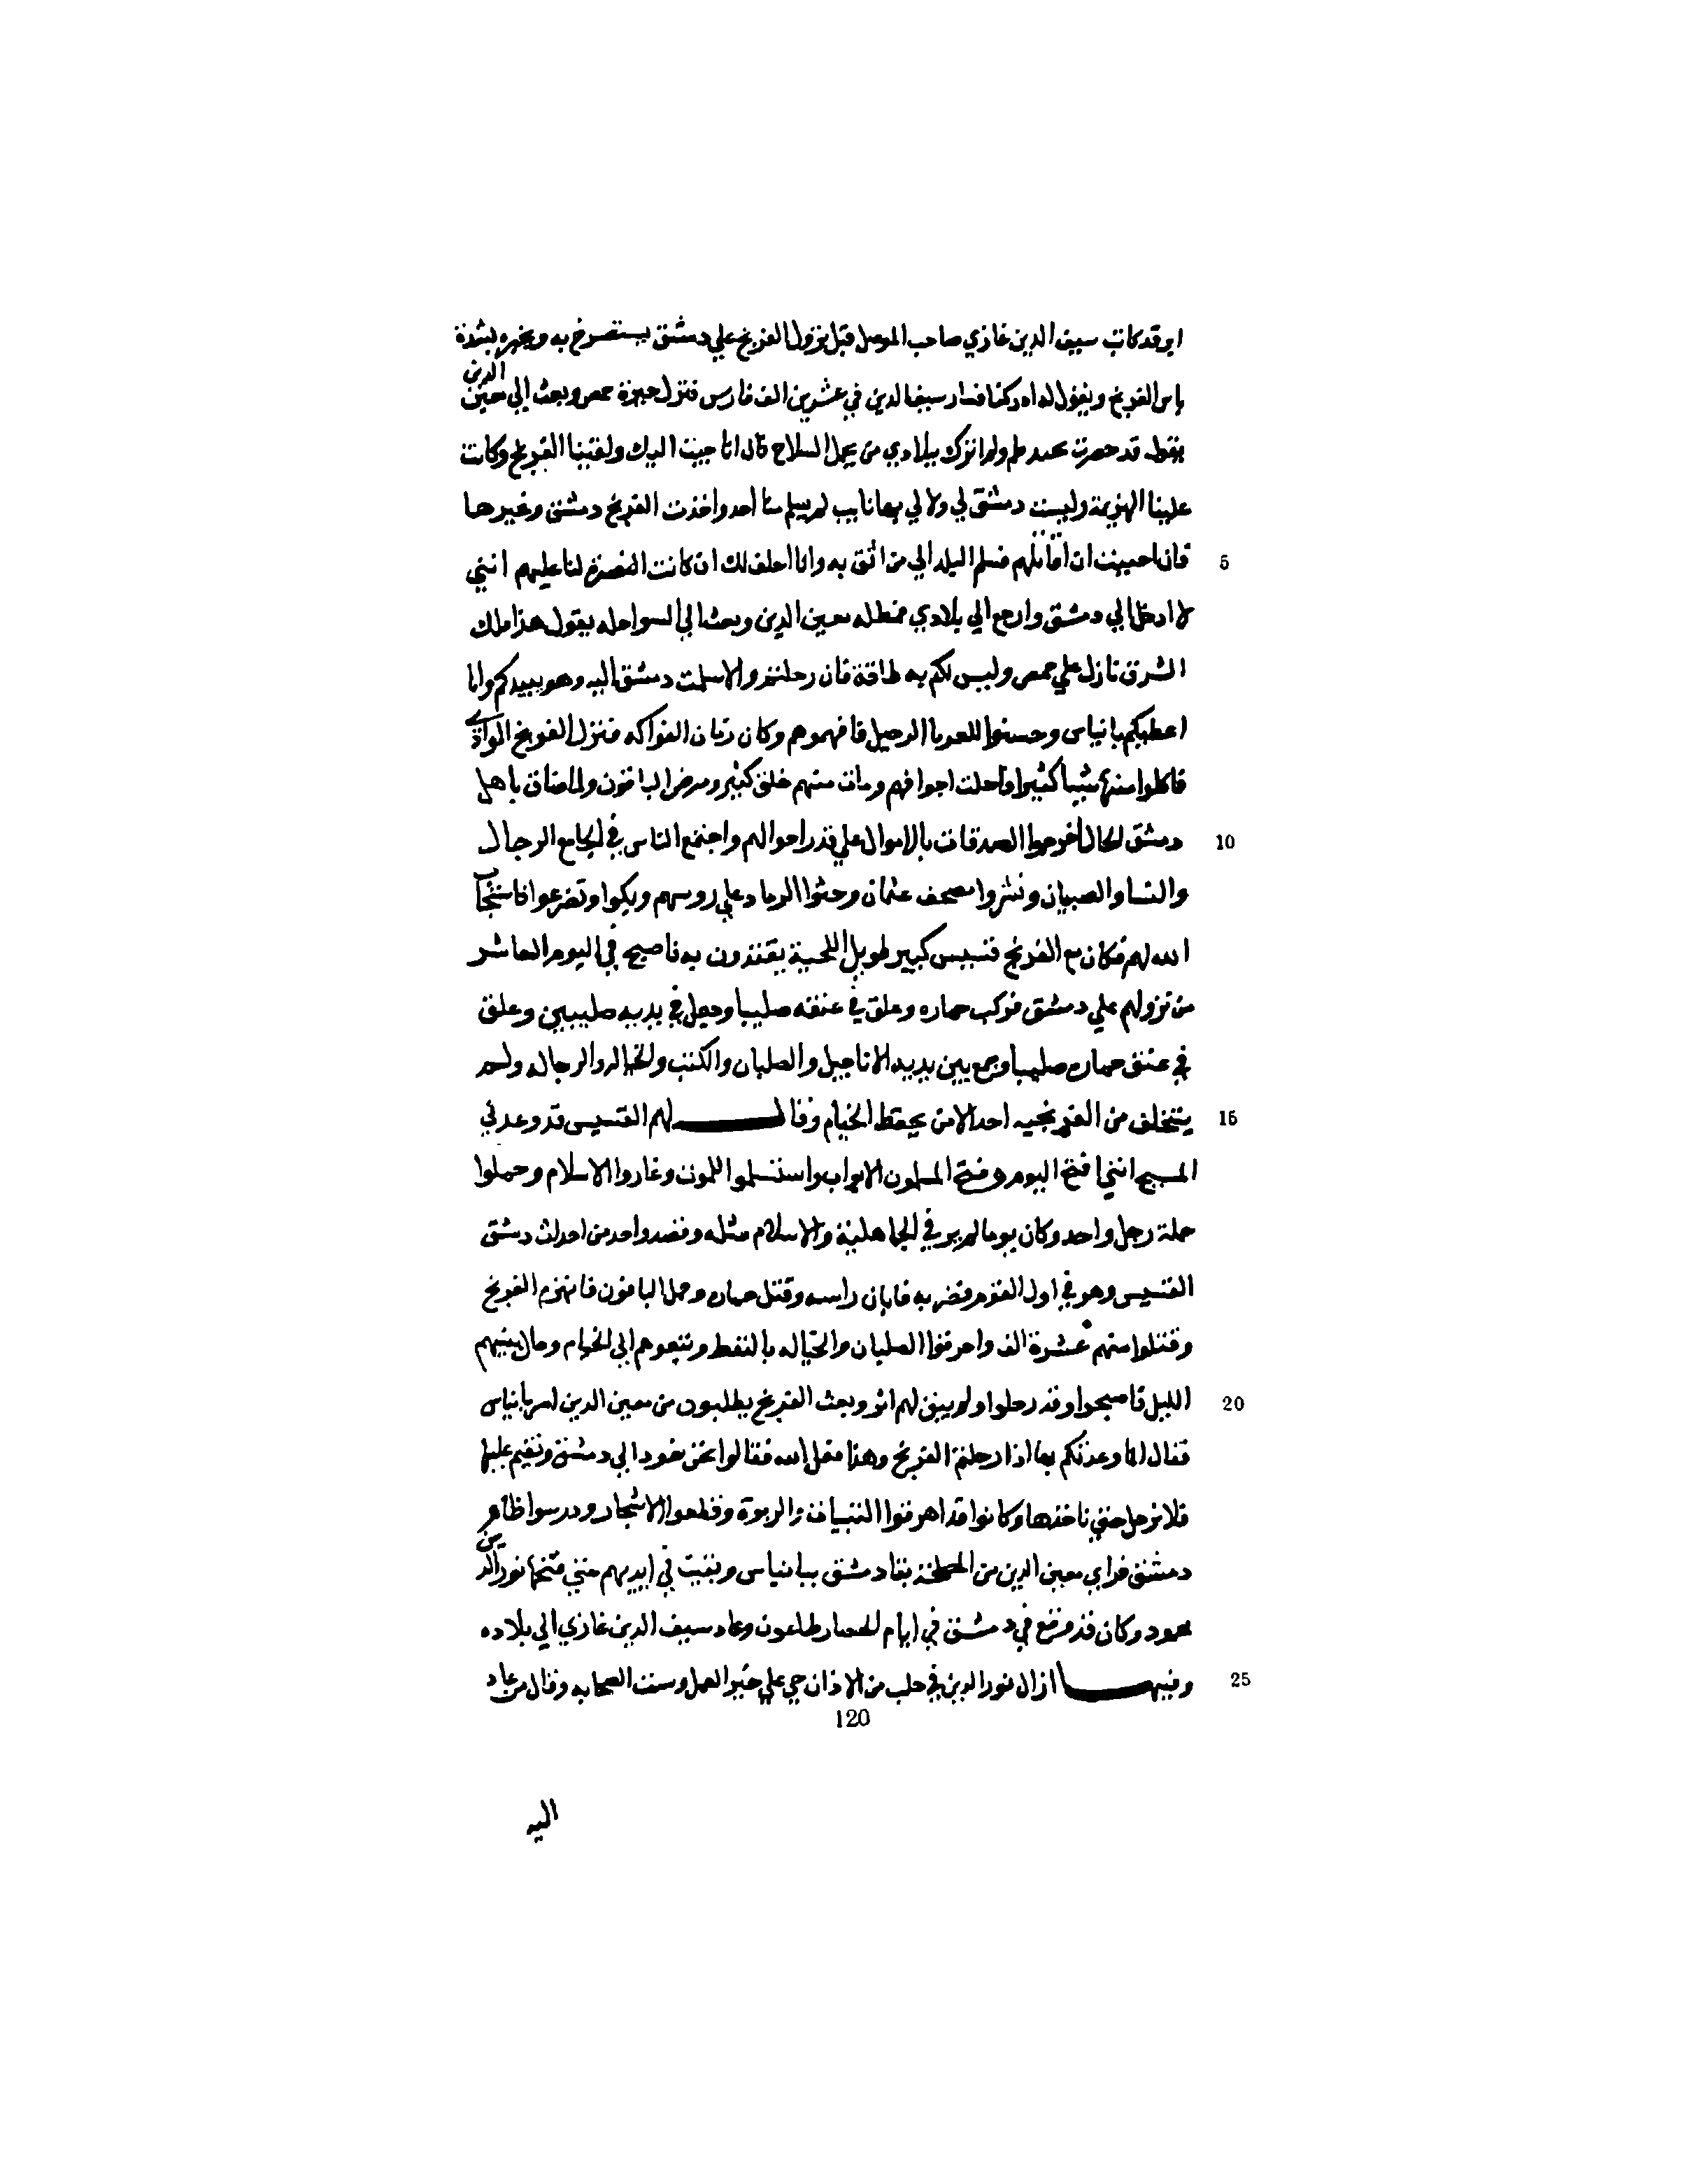 ابر قد كاتب سيف الدين غازي صاحب الموصل قبل نزول الفرنج علي دمشق يستصرخ به ويخبره بشدة
باس الفرنج ويقول له ادركنا فسار سيف الدين في عشرين الف فارس فنزل حيرة حمص وبعث الي معين الدين
يقول قد حضرت بحمد ولم اترك ببلادي من يحمل السلاح قال انا جيت اليك ولقينا الفرنج وكانت
علينا الهزيمة وليست دمشق لي ولا لي بها نايب لم يسلم منا احد واخذت الفرنج دمشق وغيرها
5 فان احببت ان اقاتلهم فسلم البلد الي من اثق به وانا احلف لك ان كانت النصرة لنا عليهم انني
لا ادخل الي دمشق وارجع الي بلادي فمطله معين الدين وبعث الي السواحله يقول هذا ملك
الشرق نازل علي حمص وليس لكم به طاقة فان رحلتم والا سلمت دمشق اليه وهو يبيدكم وانا
اعطيكم بانياس وحسنوا الرحيل وكان زمان الفواكه فنزل الفرنج الوادي
فاكلوا منها شيا كثيرا فاحلت اجوافهم ومات منهم خلق كثير ومرض الباقون ولما ضاق باهل
10 دمشق الحال اخرجوا الصدقات بالاموال علي قدر احوالهم واجتمع الناس في الجامع الرجال
والنسا والصبيان ونشروا مصحف عثمان وحثوا الرماد علي روسهم وبكوا وتضرعوا فاستجاب
الله لهم فكان مع الفرنج قسيس كبير طويل اللحية يقتدون به فاصبح في اليوم العاشر
من نزولهم علي دمشق فركب حماره وعلق في عنقه صليبا وجعل في يديه صليبين وعلق
في عنق حماره صليبا وجمع بين يديه الاناجيل والصلبان والكتب والخيالة والرجاله ولم
15 يتخلف من الفرنجيه احد الا من يحفظ الخيام وقال لهم القسيس قد وعدني
المسيح انني افتح اليوم وفتح المسلمون الابواب واستسلموا للموت وغاروا الاسلام وحملوا
حملة رجل واحد وكان يوما لم ير في الجاهلية والاسلام مثله وقصد واحد من احداث دمشق
القسيس وهو في اول القوم فضربه فابان راسه وقتل حماره وحمل الباقون فانهزم الفرنج
وقتلوا منهم عشرة الف واحرقوا الصلبان والخياله بالنفط وتبعوهم الي الخيام وحال بينهم
20 الليل فاصبحوا وقد رحلوا ولم يبق لهم اثر وبعث الفرنج يطلبون من معين الدين بانياس
فقال انا وعدتكم بها اذا رحلتم الفرنج وهذا فعل الله فقالوا نحن نعود الي دمشق ونقيم عليها
فلا نرحل حتي ناخذها وكانوا قد احرقوا والربوة وقطعوا الاشجار ودرسوا ظاهر
دمشق فراي معين الدين من المصلحة بقا دمشق ببانياس وبقيت في ايديهم حتي فتحها نور الدين
محمود وكان قد وقع في دمشق في ايام الحصار طاعون وعاد سيف الدين غازي الي بلاده
25 وفيها ازال نور الدين في حلب من الاذان حي علي خير العمل وسب الصحابه وقال من عاد
120
اليه